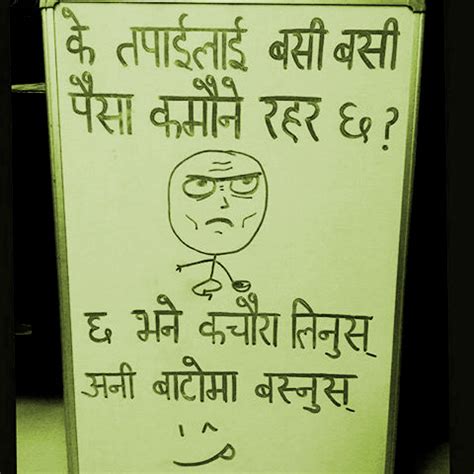 के तपाईलाई बसी बसी
पैसा कमौने रहर छ?
छ भने कचौरा लिनुस्
अनी बाटोमा बस्नुस्